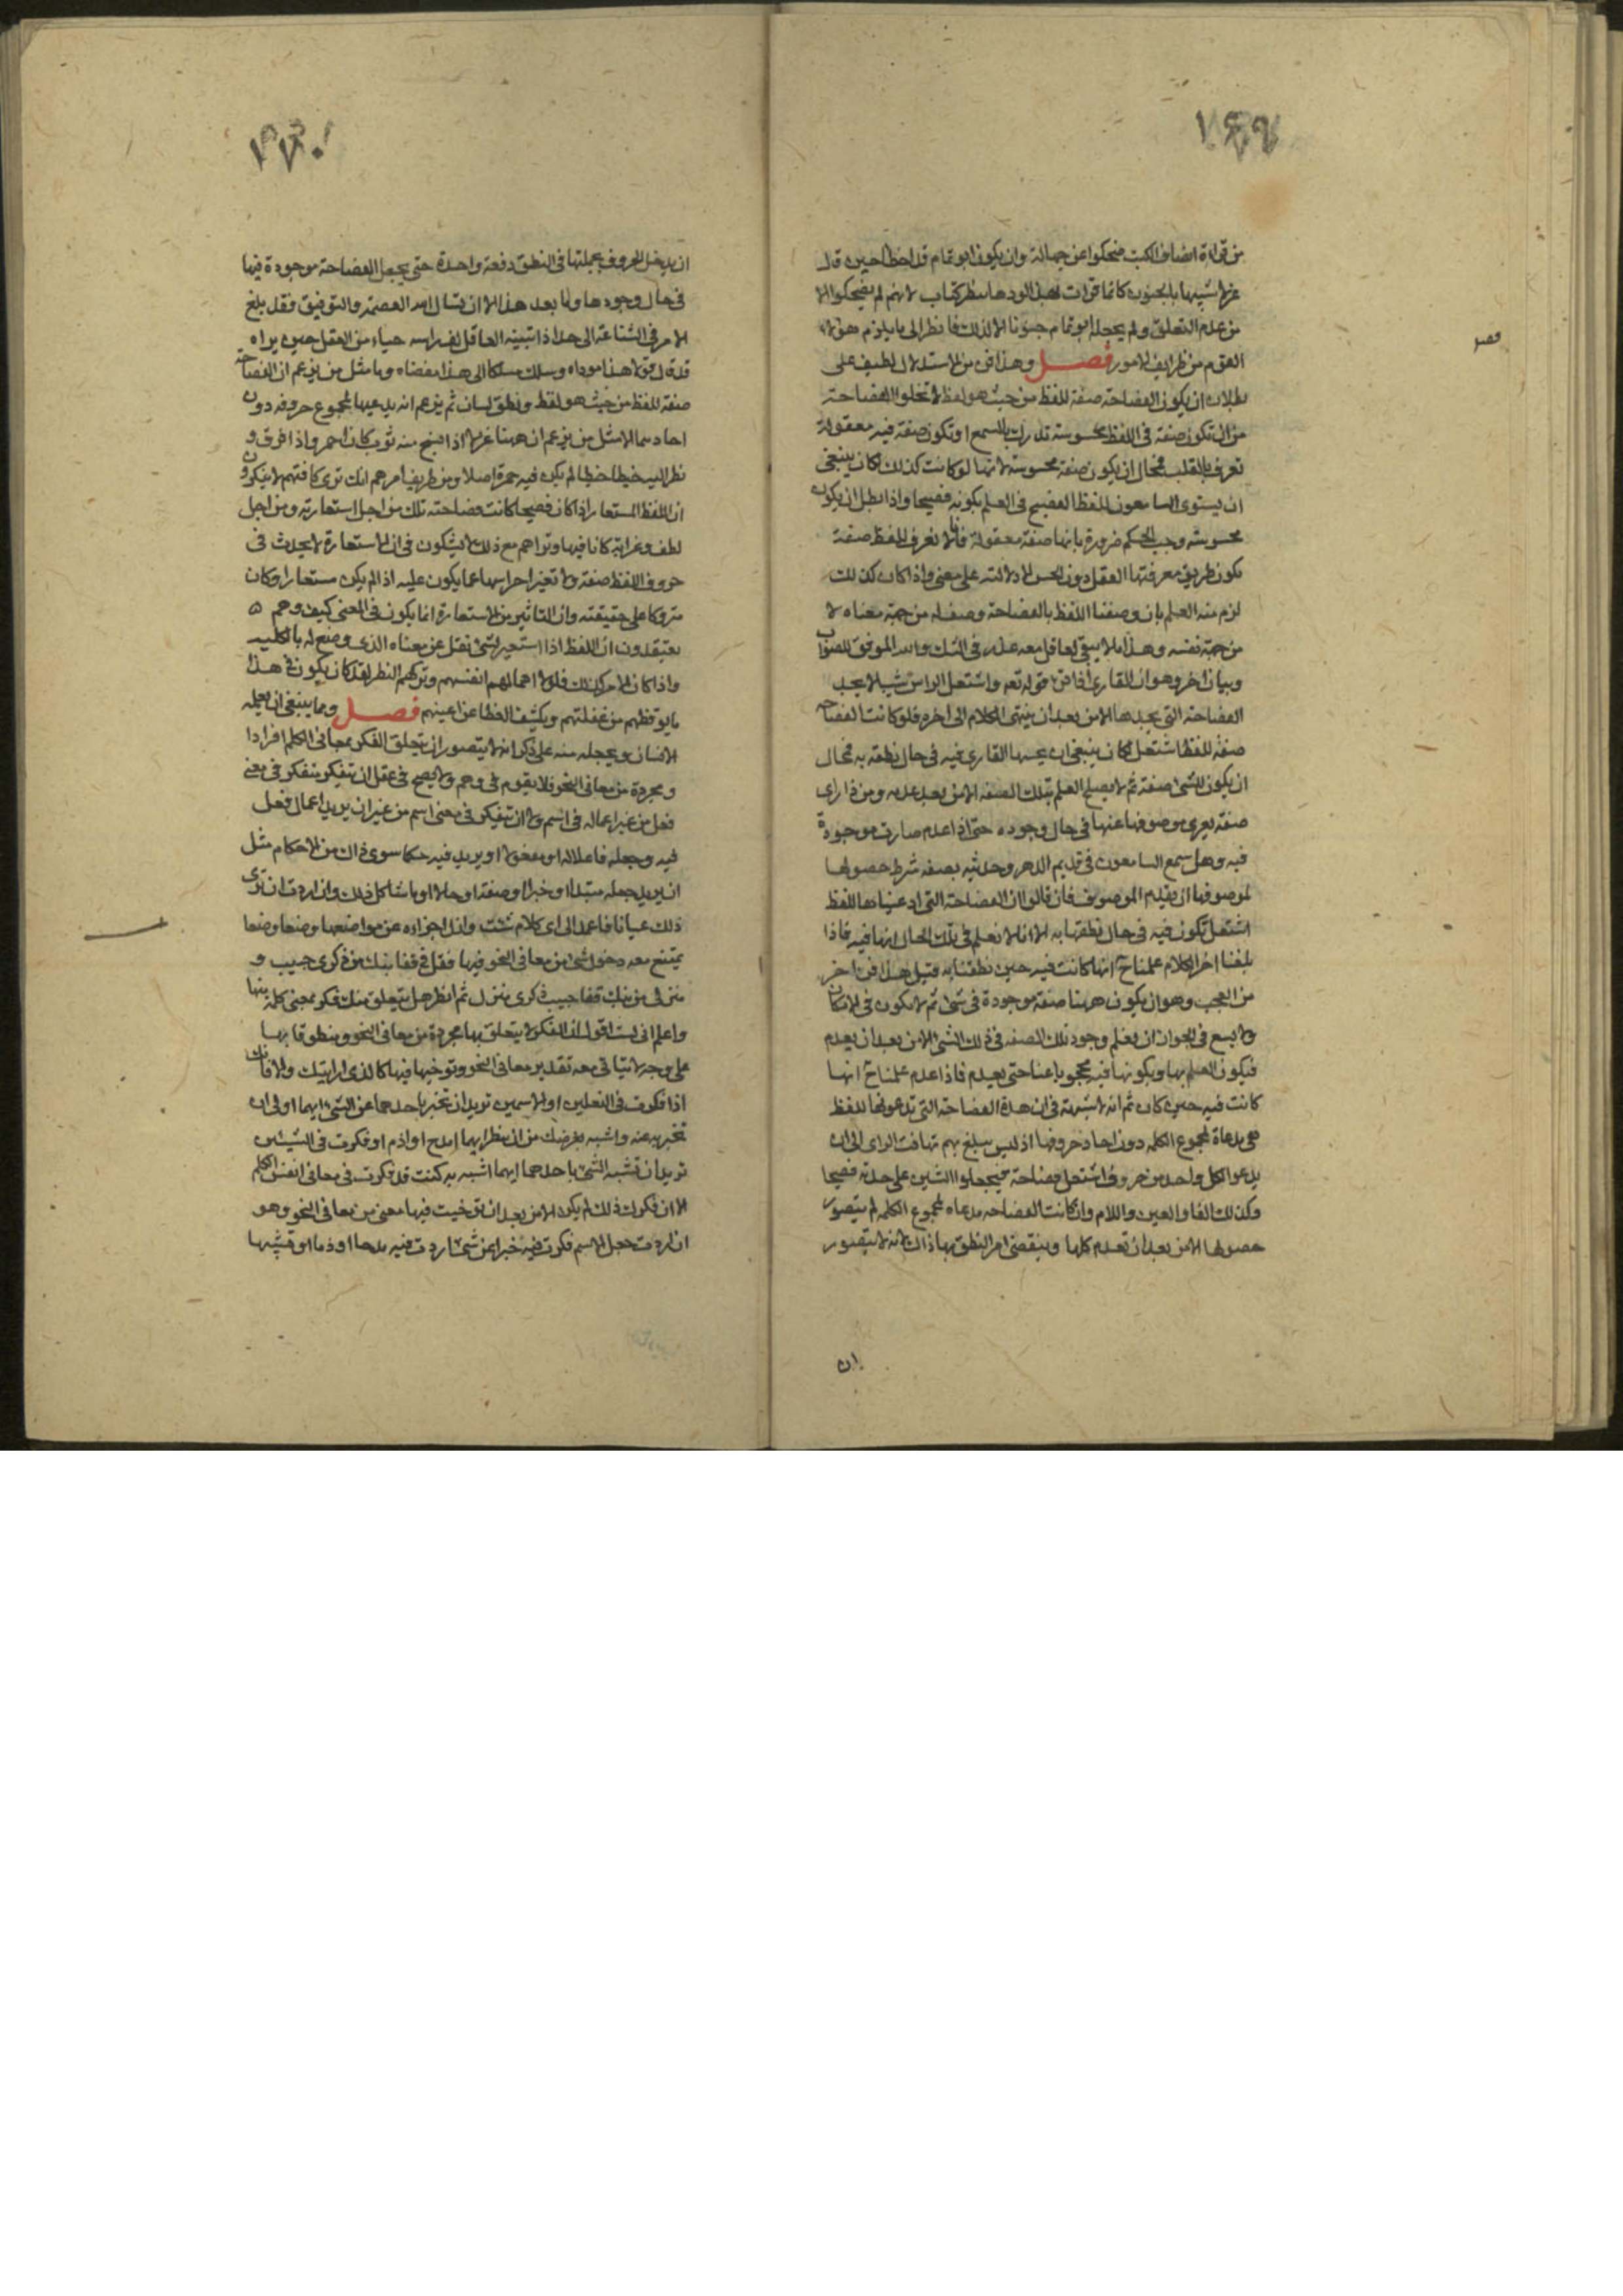 ١٦٩
من قراءة انصاف الكتب ضحكوا عن جهالة وان يكون ابو تمام قد اخطا حين قال
عزلا شبيها بالجنون كانما قرات به الورهاء شطر كتاب لانهم لم يضحكوا الا
من عدم التعلق ولم يجعله ابو تمام جنونا الا لذلك فانظر الى ما يلزم هولاء
القوم من طرايف الامور فصل وهذا فن من الاستدلال لطيف على
فصل
بطلان ان يكون الفصاحة صفة للفظ من حيث هو لفظ لا تخلوا الفصاحة
من ان تكون صفة فى اللفظ محسوسة تدرك بالسمع او تكون صفة فيه معقولة
تعرف بالقلب فمحال ان يكون صفة محسوسة لانها لو كانت كذلك لكان ينبغى
ان يستوى السامعون للفظ الفصيح فى العلم بكونه فصيحا واذا بطل ان يكون
محسوسة وجب الحكم ضرورة بانها صفة معقولة فانا لا نعرف للفظ صفة
يكون طريق معرفتها العقل دون الحس الا دلالته على معنى واذا كان كذلك
لزم منه العلم بان وصفنا اللفظ بالفصاحة وصف له من جهة معناه لا
من جهة نفسه وهذا ما لا يبقى لعاقل معه عذر فى الشك والله الموفق للصواب
وبيان اخر وهو ان القارى اذا قرا قوله تعه واشتعل الراس شيبا لا يجد
الفصاحة التى يجدها الا من بعد ان ينتهى الكلام الى اخره فلو كانت الفصاحه
صفة للفظ اشتعل لكان ينبغى ان يحسها القارى فيه فى حال نطقه به فمحال
ان يكون للشى صفة ثم لا يصح العلم بتلك الصفه الا من بعد عدمه ومن ذا راى
صفة يعرى موصوفها عنها فى حال وجوده حتى اذا عدم صارت موجودة
فيه وهل سمع السامعون فى قديم الدهر وحديثه بصفه شرط حصولها
لموصوفها ان يعدم الموصوف فان قالوا ان الفصاحة التى ادعيناها للفظ
اشتعل تكون فيه فى حال نطقنا به الا انا لا نعلم فى تلك الحال انها فيه فاذا
بلغنا اخر الكلام علمنا ح انها كانت فيه حين نطقنا به قيل هذا فن اخر
من العجب وهو ان يكون ههنا صفة موجودة فى شى ثم لا يكون فى الامكان
ولا يسع فى الجواز ان نعلم وجود تلك الصفه فى ذلك الشى الا من بعد ان يعدم
فيكون العلم بها وبكونها فيه محجوبا عنا حتى يعدم فاذا عدم علمنا ح انها
كانت فيه حين كان ثم انه لا شبهة فى ان هذه الفصاحة التى تدعونها للفظ
هى مدعاة لمجموع الكلمه دون احاد حروفها اذ ليس يبلغ بهم تهافت الراى الى ان
يدعوا لكل واحد من حروف اشتعل فصاحة فيجعلوا الشين على حدته فصيحا
وكذلك التا والعين واللام وان كانت الفصاحه مدعاه لمجموع الكلمه لم يتصور
حصولها الا من بعد ان تعدم كلها وينقضى امر النطق بها ذاك لانه لا يتصور
ان
١٧٠
ان يدخل الحروف بجملتها فى النطق دفعة واحدة حتى يجعل الفصاحة موجودة فيها
فى حال وجودها وما بعد هذا الا ان نسال الله العصمة والتوفيق فقد بلغ
الامر فى الشناعة الى حد اذا تنبه العاقل لف راسه حياء من العقل حين يراه
قد قال قولا هذا موداه وسلك مسلكا الى هذا مفضاه وما مثل من يزعم ان الفصاحة
صفة للفظ من حيث هو لفظ ونطق لسان ثم يزعم انه يدعيها لمجموع حروفه دون
احادها الا مثل من يزعم ان ههنا غزلا اذا نسج منه ثوب كان احمر واذا فرق و
نظر اليه خيطا خيطا لم يكن فيه حمرة اصلا ومن طريف امرهم انك ترى كافتهم لا ينكرون
ان اللفظ المستعار اذا كان فصيحا كانت فصاحته تلك من اجل استعارته ومن اجل
لطف وغرابة كانا فيها وتراهم مع ذلك لا يشكون فى ان الاستعارة لا يحدث فى
حروف اللفظ صفة ولا تغير اجراسها عما يكون عليه اذا لم يكن مستعارا وكان
متروكا على حقيقته وان التاثير من الاستعارة انما يكون فى المعنى كيف وهم
يعتقدون ان اللفظ اذا استعير لشى نقل عن معناه الذى وضع له بالكليه
واذا كان الامر كذلك فلولا اهمالهم انفسهم وتركهم النظر لقد كان يكون فى هذا
ما يوقظهم من غفلتهم ويكشف الغطا عن اعينهم فصل ومما ينبغى ان يعلمه
الانسان ويجعله منه على ذكر انه لا يتصور ان يتعلق الفكر بمعانى الكلم افرادا
ومجردة من معانى النحو فلا يقوم فى وهم ولا يصح فى عقل ان يتفكر متفكر فى معنى
فعل من غير اعماله فى اسم ولا ان يتفكر فى معنى اسم من غير ان يريد اعمال فعل
فيه وجعله فاعلا له او مفعولا او يريد فيه حكما سوى ذاك من الاحكام مثل
ان يريد جعله مبتدا او خبرا او صفة او حالا او ما شاكل ذلك وان اردت ان ترى
ذلك عيانا فاعمد الى اى كلام شئت وازل اجزاءه عن مواضعها وضعها وضعا
يمتنع معه دخول شى من معانى النحو فيها فقل فى قفا نبك من ذكرى حبيب و
منزل من نبك قفا حبيب ذكرى منزل ثم انظر هل يتعلق منك فكر بمعنى كلمه منها
واعلم انى لست اقول ان الفكر لا يتعلق بها مجردة من معانى النحو ومنطوقا بها
على وجه لا يتاتى معه تقدير معانى النحو وتوخيها فيها كالذى اريتك والا فانك
اذا فكرت فى الفعلين او الاسمين تريد ان تخبر باحدهما عن الشى ايهما اولى ان
تخبر به عنه واشبه بغرضك من ان تنظر ايهما امدح او اذم او فكرت فى الشيئين
تريد ان تشبه الشى باحدهما ايهما اشبه به كنت قد فكرت فى معانى انفس الكلم
الا ان فكرك ذلك لم يكن الا من بعد ان توخيت فيها معنى من معانى النحو وهو
ان اردت جعل الاسم فكرت فيه خبرا عن شى اردت فيه مدحا او ذما او تشبيها